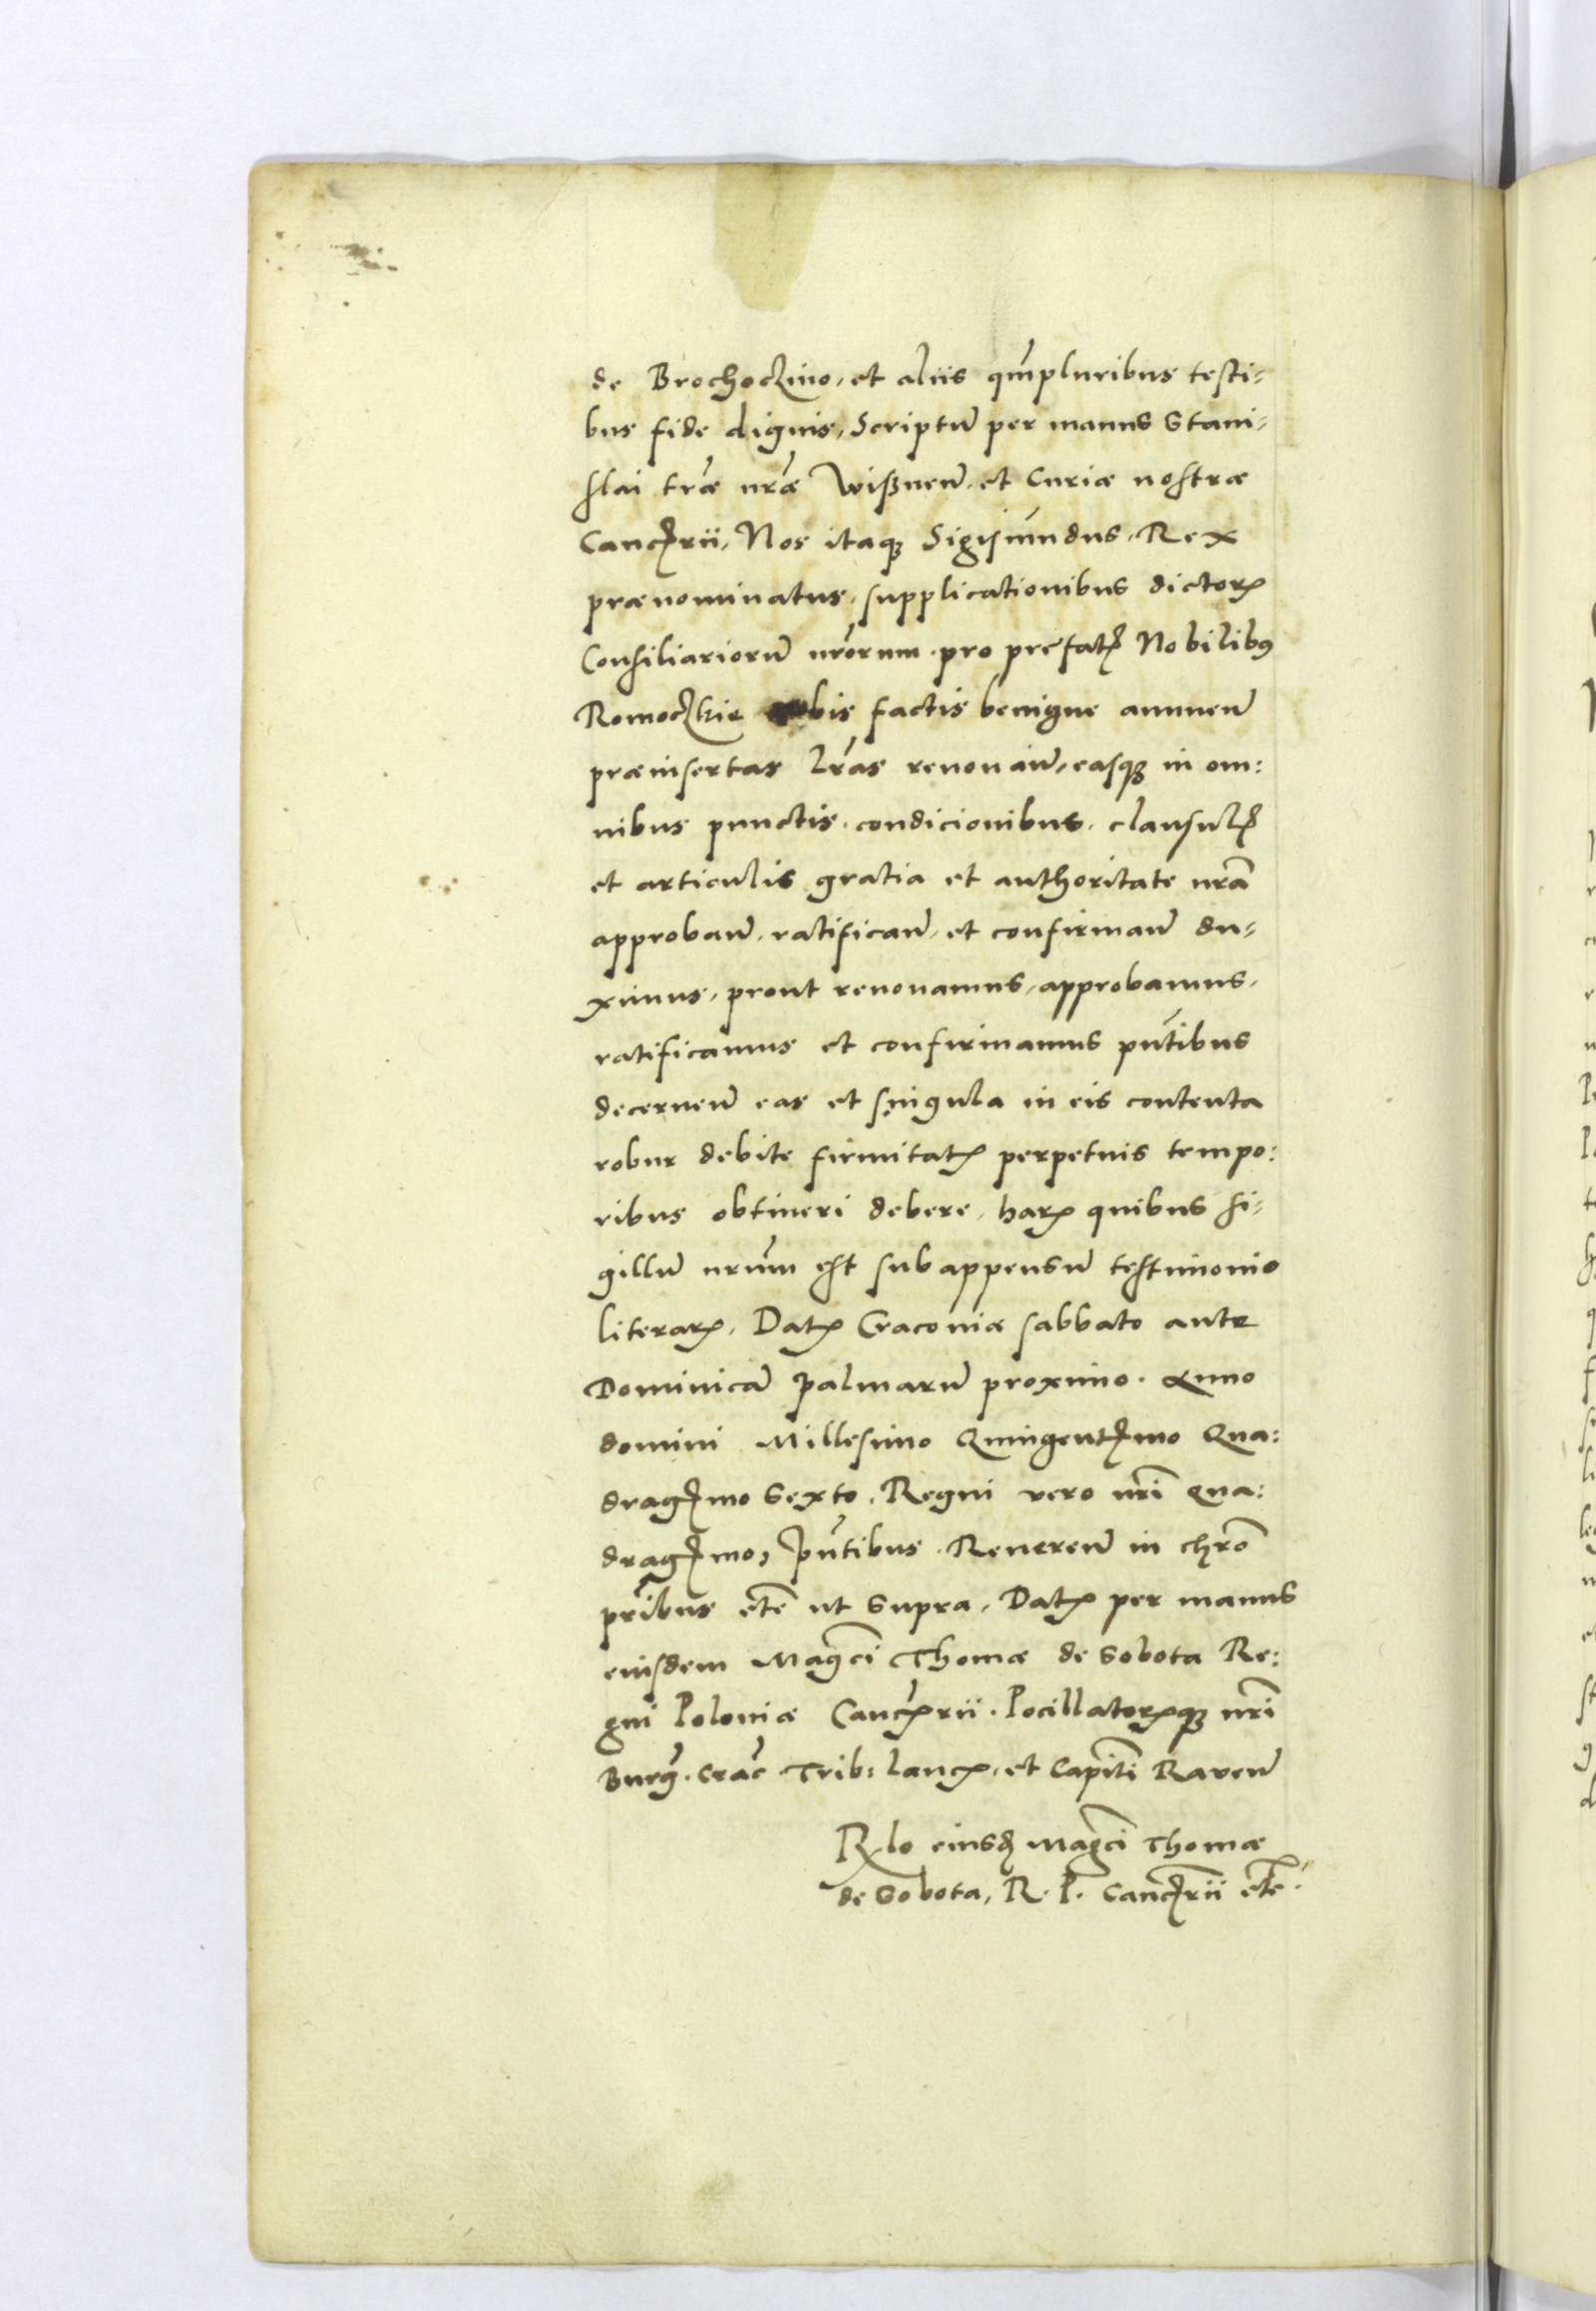 de Brochoczino, et aliis qm̃pluribus testi-
bus fide dignis, Scriptũ per manus Stani-
slai trã nrã Wißnen̄ et Curiæ nostræ
Cancꝭrii, Nos itaqꝫ Sigismundus, Rex
prænominatus, supplicationibus dictorꝝ
Consiliariorũ nr̃orum pro prefatꝭ Nobilibꝰ
Romoczkie nobis factis benigne annuen̄
præinsertas lr̃as renouan̄, easqꝫ in om:
nibus punctis, condicionibus, clausulꝭ
et articulis gratia et authoritate nrã
approban̄, ratifican̄, et confirman̄ du-
ximus, prout renouamus, approbamus,
ratificamus et confirmamus pñtibus
decernen̄ eas et singula in eis contenta
robur debite firmitatꝭ perpetuis tempo:
ribus obtineri debere, harꝝ quibus si-
gillũ nr̃um est subappensũ testimonio
literarꝝ, Datꝝ Cracouiæ sabbato ante
Dominicã palmarũ proximo. Anno
domini Millesimo Quingentꝭmo Qua:
dragꝭmo Sexto, Regni vero nr̃i Qua:
dragꝭmo, p̃ntibus Reueren̄ in chr̃o
pr̃ibus etc̃ ut supra, Datꝝ per manus
eiusdem Mag̃ci Thomæ de Sobota Re:
gni Poloniæ Cancꝭrii. Pocillatorꝭqꝫ nr̃i
Burg̃. Crac̃ Trib: lancꝭ, et Capit̃i Rauen̄
Rꝉo eiusdꝫ Mag̃ci Thomæ
de Sobota, R. P. Cancꝭrii etc̃.